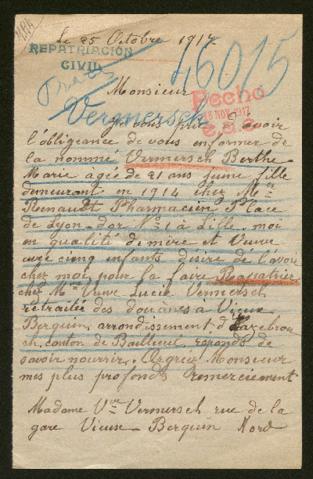 le 25 Octobre 1917
REPATRIACIÓN
CIVIL
46015
Monsieur
Vermersch
Hecho
Je vous prie d'avoir
l'obligeance de vous enformer de
la nommé Vermersch Berthe
Marie agée de 21 ans jeune fille
demeurant en 1914 chez Mr
Renaudt Pharmacien Place
de Lyon-dor No 21 à Lille. moi
en qualité de mère et Veuve
avec cinq enfants désire de l'avoir
chez moi pour la faire Repatrier
chez Mme Veuve Lucie Vermersch
retraitée des douanes a Vieux
Berquin arrondissement d'Hazebrou
ck, canton de Bailleul, reponds de
savoir nourrir. Agréez Monsieur
mes plus profonds remerciement
Madame Vve Vermersch rue de la
gare Vieux-Berquin Nord